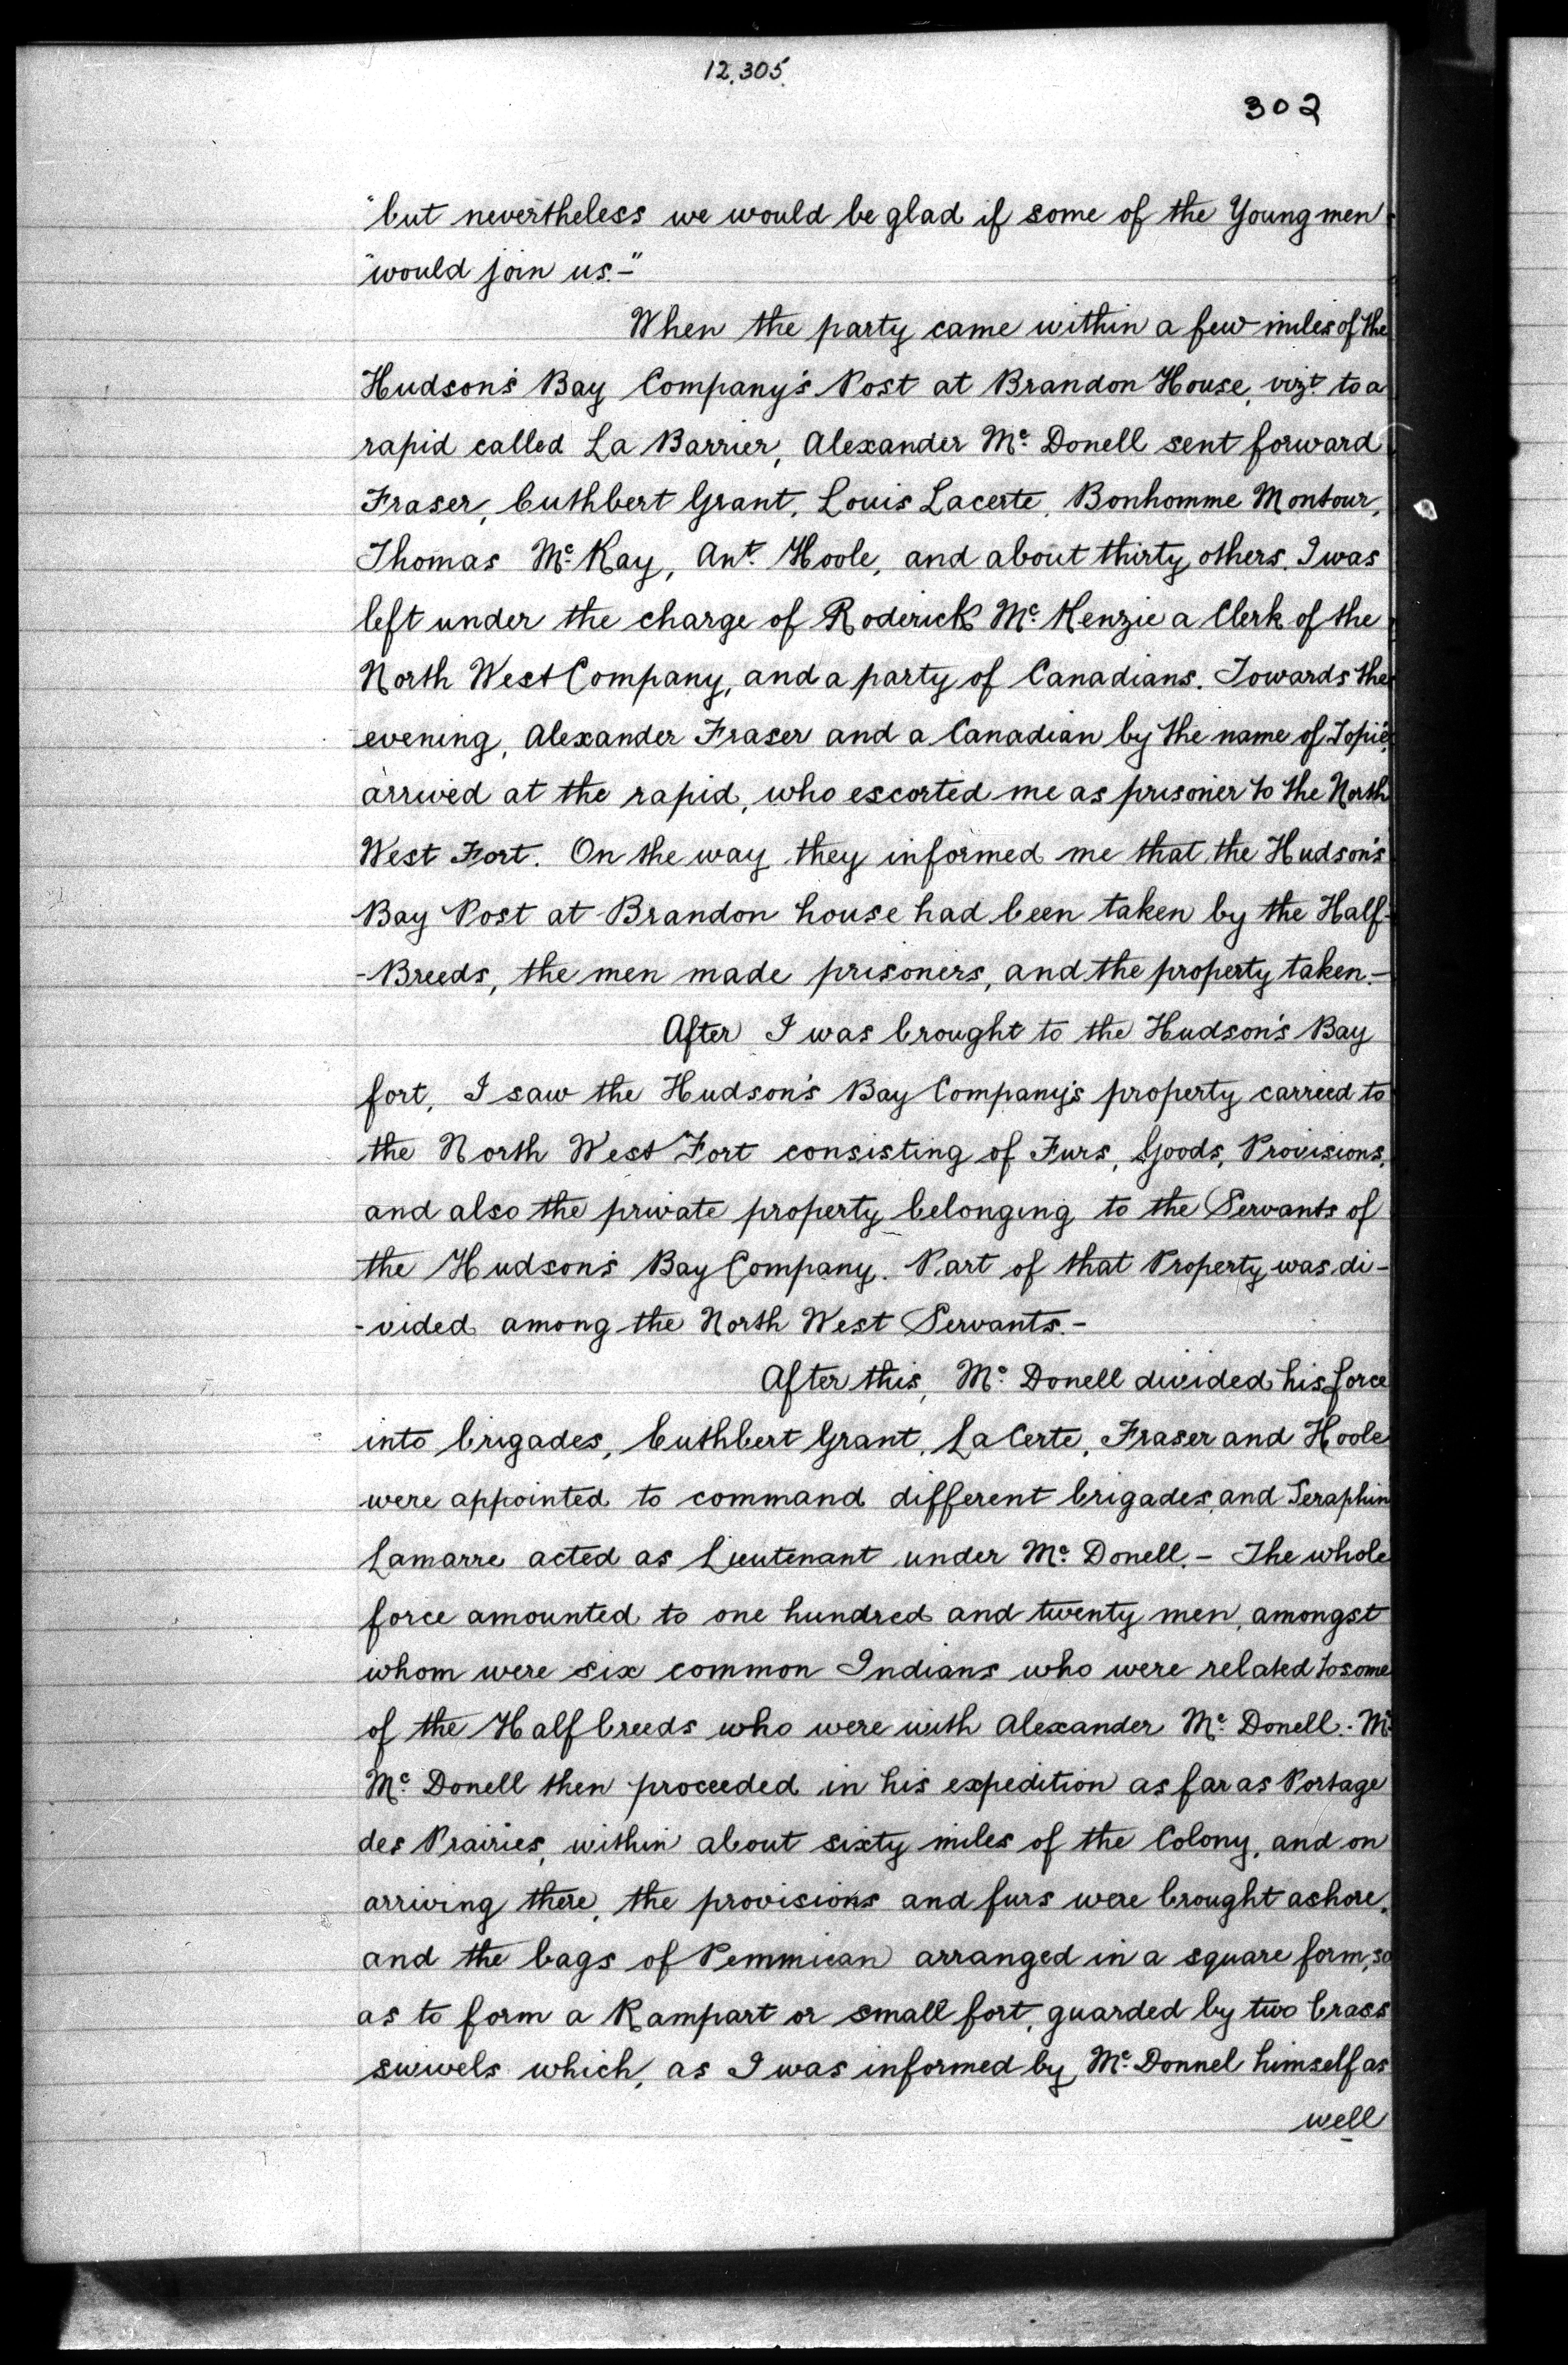 12.305.
302
"but nevertheless we would be glad if some of the Young men
"would join us.-"
When the party came within a few miles of the
Hudson's Bay Company's Post at Brandon House, vizt. to a
rapid called La Barrier, Alexander Mc. Donell sent forward
Fraser, Cuthbert Grant, Louis Lacerte, Bonhomme Montour,
Thomas Mc. Kay, Ant. Hoole, and about thirty others. I was
left under the charge of Roderick Mc. Kenzie a Clerk of the
North West Company, and a party of Canadians. Towards the
evening, Alexander Fraser and a Canadian by the name of Topié,
arrived at the rapid, who escorted me as prisoner to the North
West Fort. On the way they informed me that the Hudson's
Bay Post at Brandon house had been taken by the Half-
-Breeds, the men made prisoners, and the property taken.-
After I was brought to the Hudson's Bay
fort, I saw the Hudson's Bay Company's property carried to
the North West Fort consisting of Furs, Goods, Provisions,
and also the private property belonging to the Servants of
the Hudson's Bay Company. Part of that Property was di-
-vided among the North West Servants.-
After this, Mc. Donell divided his force
into brigades, Cuthbert Grant, La Certe, Fraser and Hoole
were appointed to command different brigades, and Seraphin
Lamarre acted as Lieutenant under Mc. Donell.- The whole
force amounted to one hundred and twenty men, amongst
whom were six common Indians who were related to some
of the Half breeds who were with Alexander Mc. Donell.- Mr.
Mc. Donell then proceeded in his expedition as far as Portage
des Prairies, within about sixty miles of the Colony, and on
arriving there, the provisions and furs were brought ashore,
and the bags of Pemmican arranged in a square form, so
as to form a Rampart or small fort, guarded by two brass
swivels which, as I was informed by Mc. Donnel himself as
well